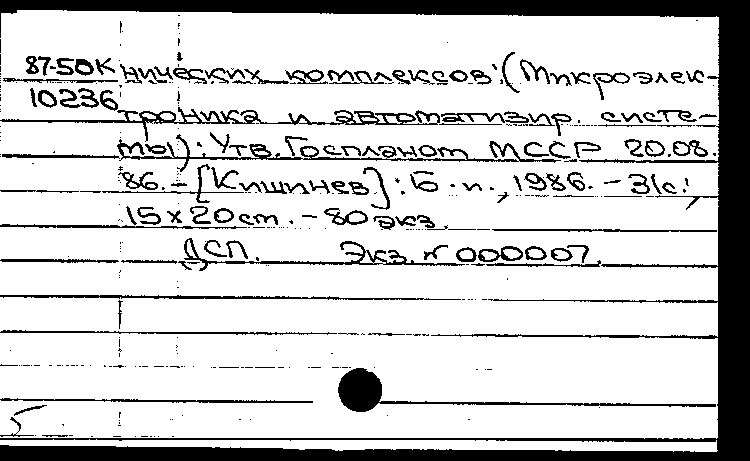 87-50К нических комплексов: (Микроэлек-
10236 троника и автоматизир. систе-
мы): Утв. Госпланом МССР 20.08.
86. – [Кишинев]: Б. и., 1986. – 31с.;
15 x 20 см. – 80 экз.
ДСП. Экз. № 000007.
5